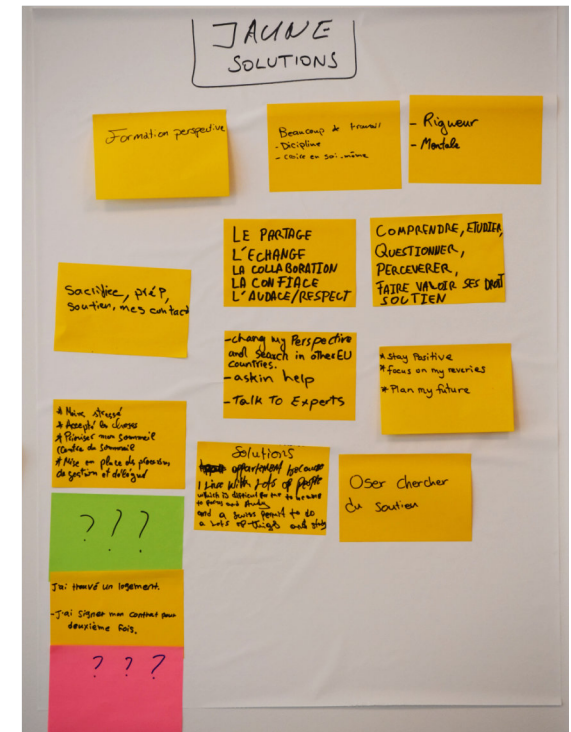 JAUNE
SOLUTIONS
Formation perspective
Beaucoup de travail
- Dicipline
- croire en soi-même
- Rigueur
- Mentale
LE PARTAGE
L'ECHANGE
LA COLLABORATION
LA CONFIACE
L'AUDACE/RESPECT
COMPRENDRE, ETUDIER,
QUESTIONNER,
PERCEVERER,
FAIRE VALOIR SES DROIT
SOUTIEN
Sacrifice, prép,
soutien, mes contact
- chang my Perspective
and search in other EU
countries.
- askin help
- Talk To Experts
* Stay Positive
* focus on my reveries
* Plan my future
* Moins stressé
* Accepté les choses
* Prioriser mon sommeil
* Mise en place de
de gestion et délégué
Solutions
appartement because
I Live with Lots of people
which is difficult for me to be able
to focus and study
and a swiss permit to do
a Lots of things and study
Oser chercher
du soutien
? ? ?
J'ai trouvé un logement.
- J'ai signer mon contrat pour
deuxième fois.
? ? ?